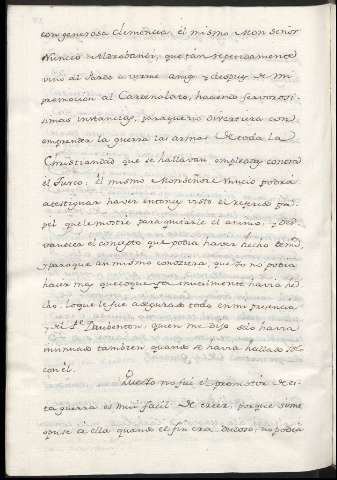 con generosa clemencia, el mismo Monseñor
Nuncio Aldobandi, que tan repentinamente
vino al Pardo a verme antes y despues de mi
promocion al Cardenalato, haciendo fervorosis-
simas instancias, para que no divertiera con
emprender la guerra las armas de toda la
Christiandad que se hallavan empleadas contra
el Turco: El mismo Monseñor Nuncio podrà
atestiguar haver entonces visto el referido pa-
pel que le mostrè para quitarle el animo, y des-
vanecer el concepto que podia haver hecho de mi
y para que assimismo conociera, que Yo no podia
hacer mas que lo que finalmente havia he-
cho: lo que le fue asegurado todo en mi presencia
y el Pe. Daubenton, quien me dijo se lo havia
mismado tambien quando se havia hallado solo
con èl.
Que Yo no fui el promotor de es-
ta guerra es mui facil de creer, porque si me
opuse à ella quando el fin era dudoso, no podia